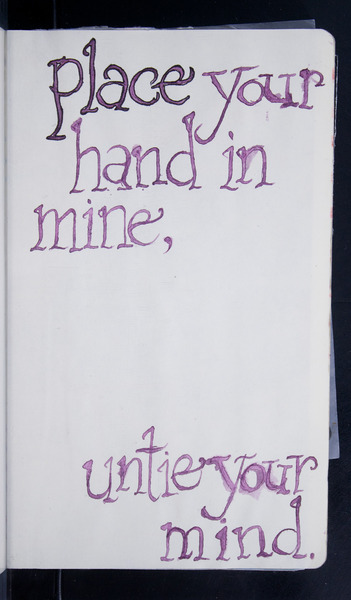 place your
hand in
mine,
untie your
mind.